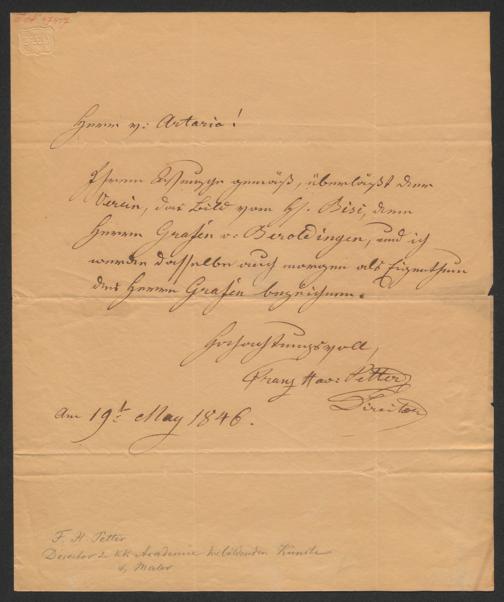 Herrn v: Artaria!
Ihrem Wunsche gemäß, überläßt der
Verein, das Bild vom H. Bisi, dem
Herrn Grafen v. Beroldingen, und ich
werde dasselbe auch morgen als Eigenthum
des Herrn Grafen bezeichnen.
Hochachtungsvoll,
Franz Xav: Petter
Director
Am 19t May 1846.
F. X. Petter
Director d. KK Academie bildenden Künste
u. Maler